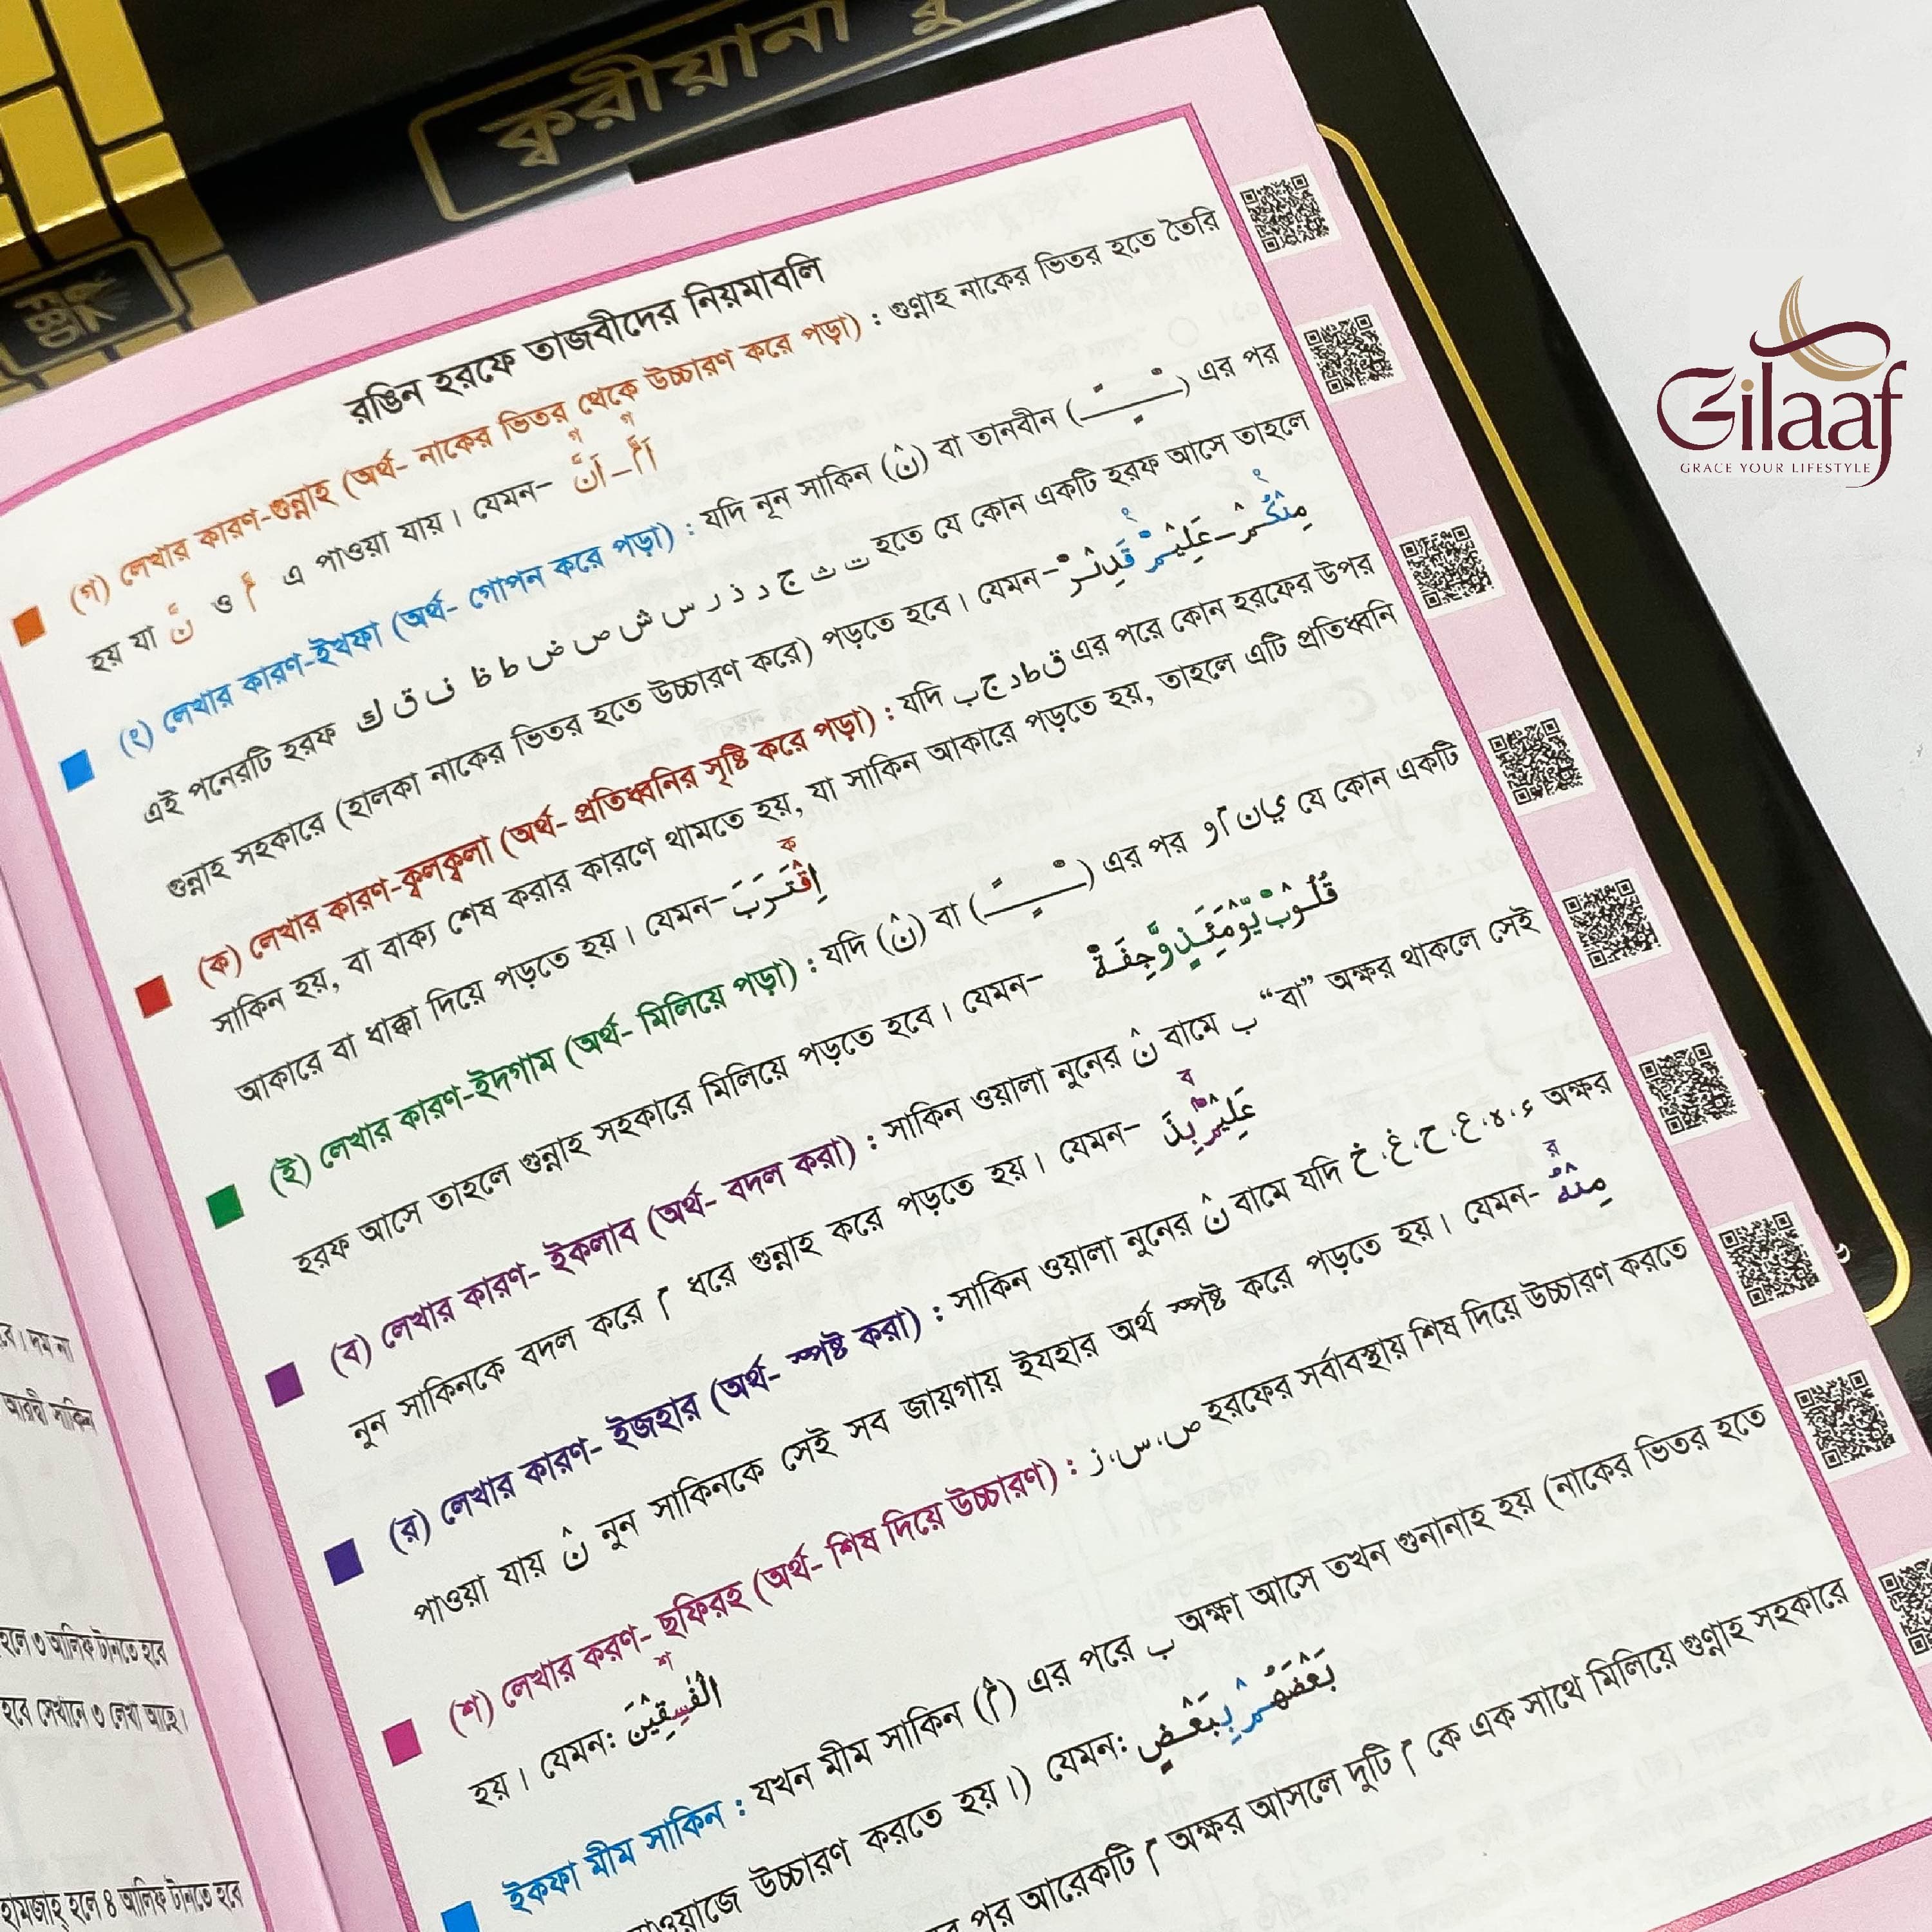 ক্বারীয়ানা
Gilaaf
GRACE YOUR LIFESTYLE
রঙিন হরফে তাজবীদের নিয়মাবলি
(গ) লেখার কারণ-গুন্নাহ (অর্থ- নাকের ভিতর থেকে উচ্চারণ করে পড়া) : গুণ্নাহ নাকের ভিতর হতে তৈরি
হয় যা نّ ও مّ এ পাওয়া যায়। যেমন- اَمَّ – اَنَّ
(ং) লেখার কারণ-ইখফা (অর্থ- গোপন করে পড়া) : যদি নূন সাকিন (نْ) বা তানবীন (ـًـٍـٌ) এর পর
এই পনেরটি হরফ ت ث ج د ذ ز س ش ص ض ط ظ ف ق ك হতে যে কোন একটি হরফ আসে তাহলে
গুন্নাহ সহকারে (হালকা নাকের ভিতর হতে উচ্চারণ করে) পড়তে হবে। যেমন- مِنْكُمْ – عَلِيْمٌ قَدِيْرٌ
(ক) লেখার কারণ-ক্বলক্বলা (অর্থ- প্রতিধ্বনির সৃষ্টি করে পড়া) : যদি ق ط د ج ب এর পরে কোন হরফের উপর
সাকিন হয়, বা বাক্য শেষ করার কারণে থামতে হয়, যা সাকিন আকারে পড়তে হয়, তাহলে এটি প্রতিধ্বনি
আকারে বা ধাক্কা দিয়ে পড়তে হয়। যেমন- اِقْتَرَبَ
(ই) লেখার কারণ-ইদগাম (অর্থ- মিলিয়ে পড়া) : যদি (نْ) বা (ـًـٍـٌ) এর পর ي ن م و যে কোন একটি
হরফ আসে তাহলে গুন্নাহ সহকারে মিলিয়ে পড়তে হবে। যেমন- قُلُوْبٌ يَّوْمَئِذٍ وَّاجِفَةٌ
(ব) লেখার কারণ- ইকলাব (অর্থ- বদল করা) : সাকিন ওয়ালা নুনের نْ বামে ب “বা” অক্ষর থাকলে সেই
নুন সাকিনকে বদল করে م ধরে গুন্নাহ করে পড়তে হয়। যেমন- عَلِيْمٌ بِذَ
(র) লেখার কারণ- ইজহার (অর্থ- স্পষ্ট করা) : সাকিন ওয়ালা নুনের نْ বামে যদি ء، ه، ع، ح، غ، خ অক্ষর
পাওয়া যায় نْ নুন সাকিনকে সেই সব জায়গায় ইযহার অর্থ স্পষ্ট করে পড়তে হয়। যেমন- مِنْهُ
(শ) লেখার করণ- ছফিরহ (অর্থ- শিষ দিয়ে উচ্চারণ) : ص، س، ز হরফের সর্বাবস্থায় শিষ দিয়ে উচ্চারণ করতে
হয়। যেমন: الْفٰسِقِيْنَ
ইকফা মীম সাকিন : যখন মীম সাকিন (مْ) এর পরে ب অক্ষা আসে তখন গুনানাহ হয় (নাকের ভিতর হতে
উচ্চারণ করতে হয়।) যেমন: بَعْضَهُمْ بِبَعْضٍ
পর আরেকটি م অক্ষর আসলে দুটি م কে এক সাথে মিলিয়ে গুণ্নাহ সহকারে
দম না
আরবী সাকিন
হলে ৩ আলিফ টানতে হবে
হবে সেখানে ৩ লেখা আছে।
হামজাহ্ হলে ৪ আলিফ টানতে হবে